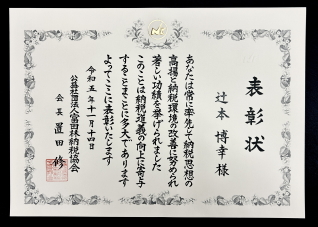 表彰状
辻本 博幸 様
あなたは常に率先して納税思想の
高揚と納税環境の改善に努められ
著しい功績を挙げられました
このことは納税道義の向上に寄与
することまことに多大であります
よってここに表彰いたします
令和五年十一月十四日
公益社団法人富田林納税協会
会長 置田 修